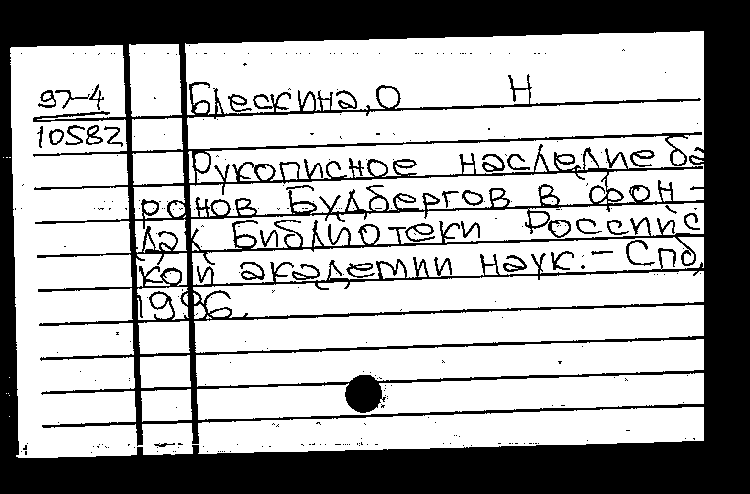 97-4
10582
Блескина, О Н
Рукописное наследие ба
ронов Будбергов в фон-
дах Библиотеки Российс
кой академии наук. - Спб,
1996.